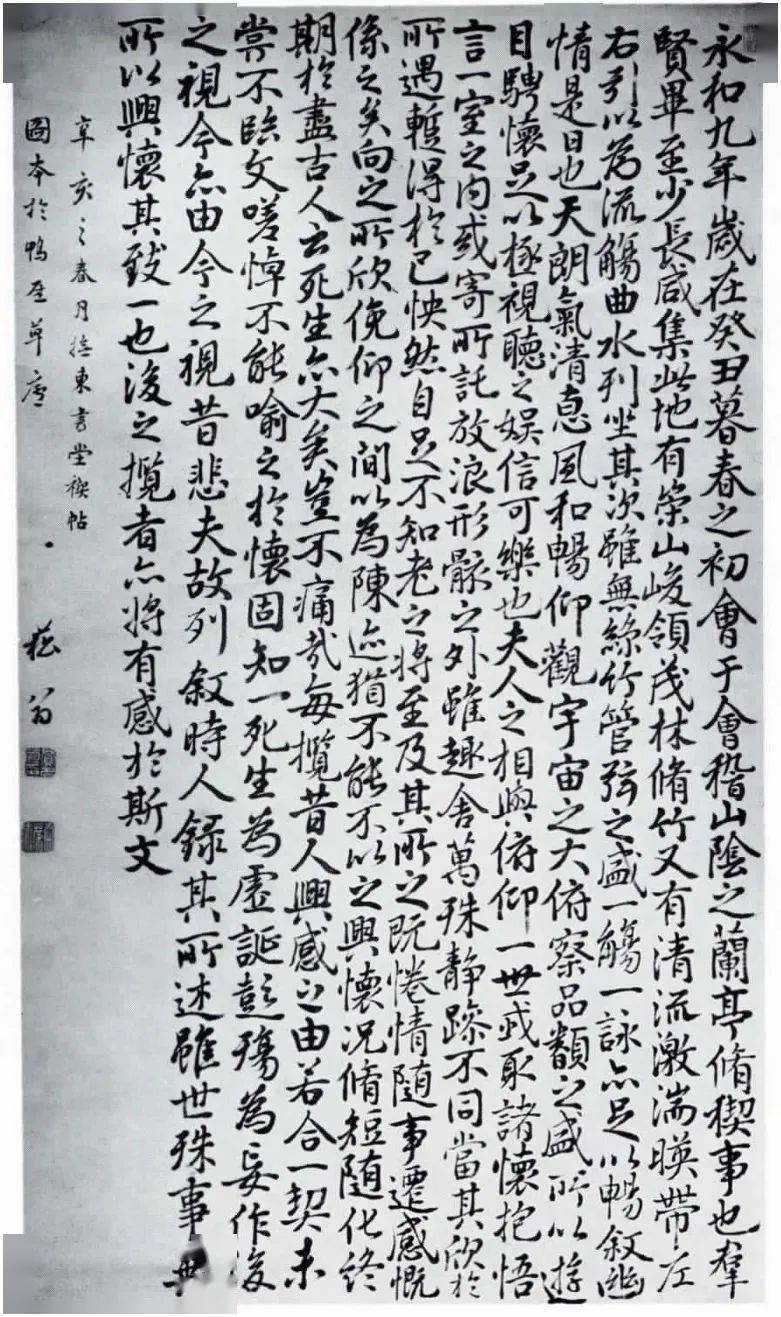 永和九年歲在癸丑暮春之初會于會稽山陰之蘭亭脩稧事也羣
賢畢至少長咸集此地有崇山峻領茂林脩竹又有清流激湍暎帶左
右引以為流觴曲水列坐其次雖無絲竹管弦之盛一觴一詠亦足以暢敘幽
情是日也天朗氣清惠風和暢仰觀宇宙之大俯察品類之盛所以遊
目騁懷足以極視聽之娛信可樂也夫人之相與俯仰一世或取諸懷抱悟
言一室之內或寄所託放浪形骸之外雖趣舍萬殊靜躁不同當其欣於
所遇蹔得於己怏然自足不知老之將至及其所之既惓情隨事遷感慨
係之矣向之所欣俛仰之間以為陳迹猶不能不以之興懷況脩短隨化終
期於盡古人云死生亦大矣豈不痛哉每攬昔人興感之由若合一契未
嘗不臨文嗟悼不能喻之於懷固知一死生為虛誕彭殤為妄作後
之視今亦由今之視昔悲夫故列敘時人錄其所述雖世殊事
所以興懷其致一也後之攬者亦將有感於斯文
辛亥之春月撫東書堂稧帖
圖本於鴨草廬 翁